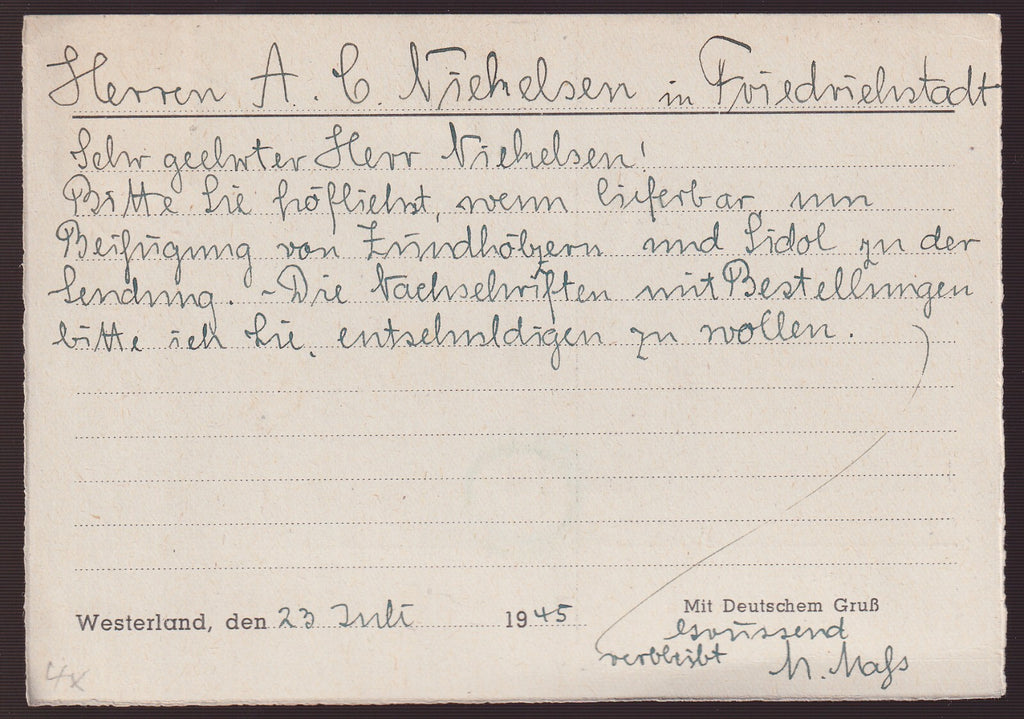 Herren A. C. Nickelsen in Friedrichstadt
Sehr geehrter Herr Nickelsen!
Bitte Sie höflichst, wenn lieferbar um
Beifügung von Zündhölzern und Sidol zu der
Sendung. - Die Nachschriften mit Bestellungen
bitte ich Sie, entschuldigen zu wollen.
Westerland, den 23 Juli 1945
Mit Deutschem Gruß
Grüssend
verbleibt
4x